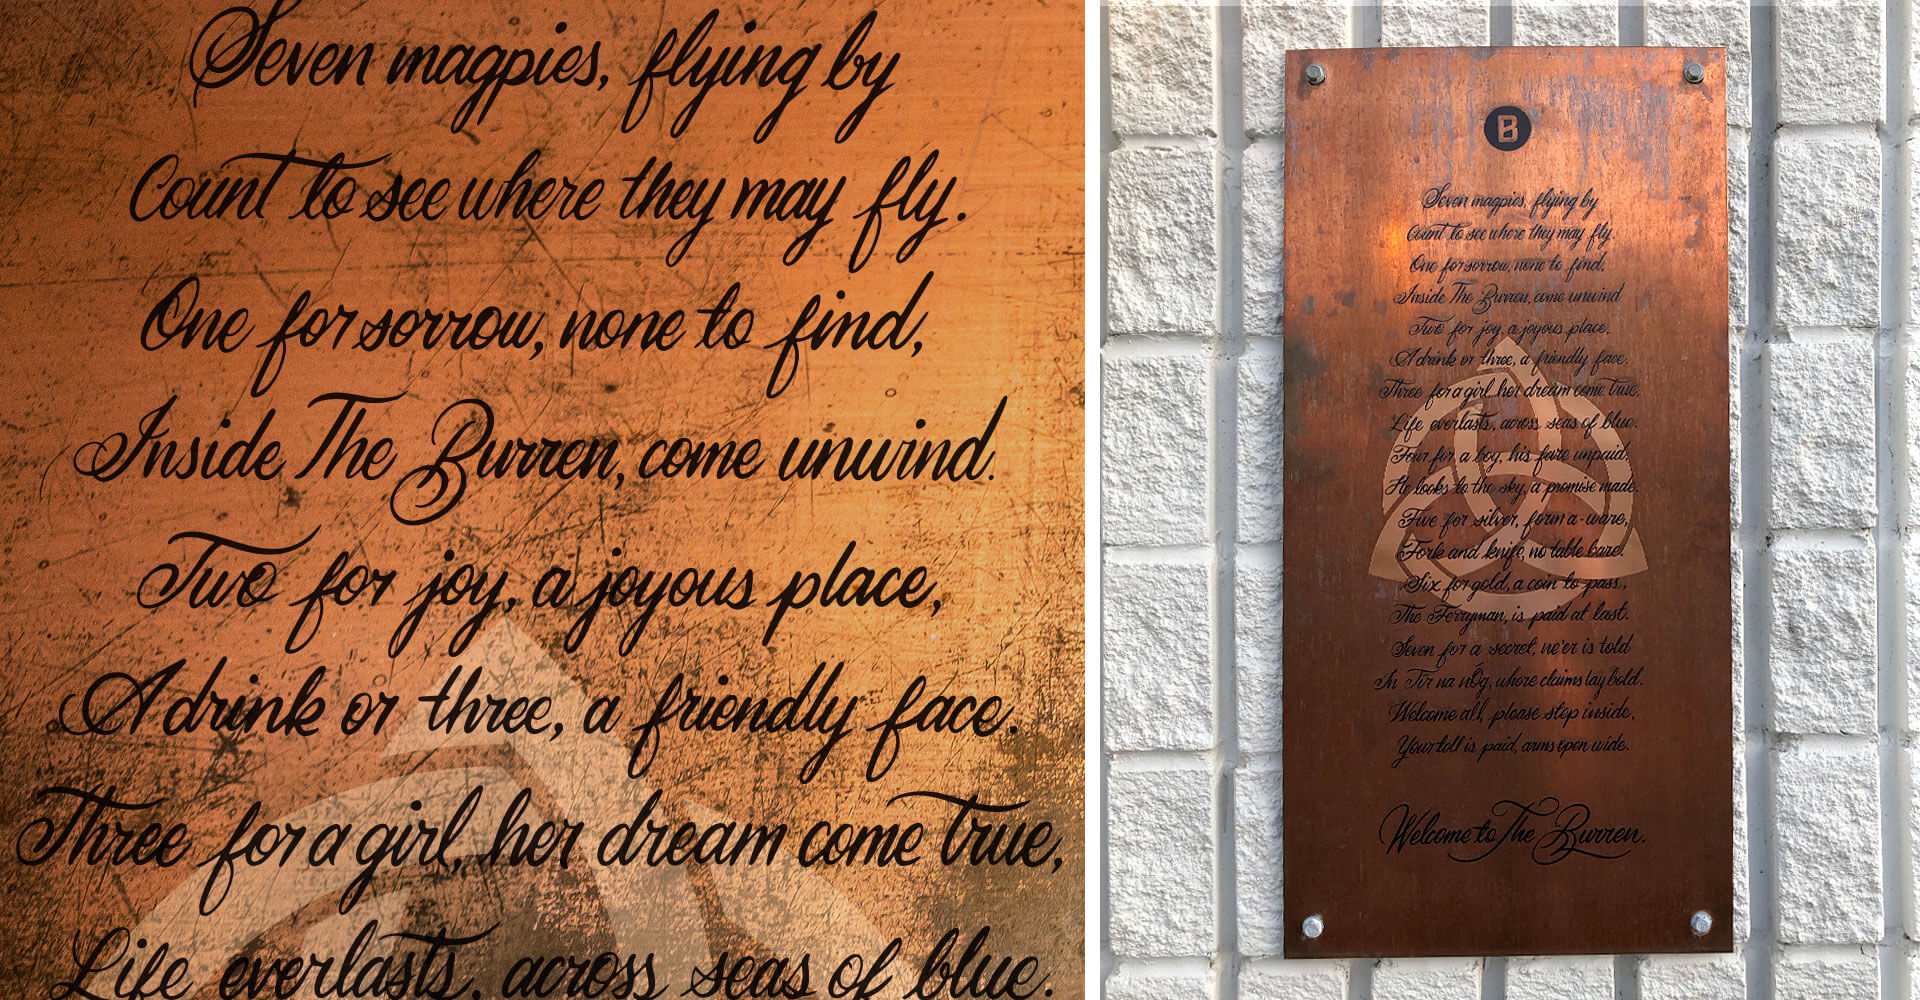 Seven magpies, flying by
Count to see where they may fly.
One for sorrow, none to find,
Inside The Burren, come unwind.
Two for joy, a joyous place,
A drink or three, a friendly face.
Three for a girl, her dream come true,
Life everlasts, across seas of blue.
B
Seven magpies, flying by
Count to see where they may fly.
One for sorrow, none to find,
Inside The Burren, come unwind
Two for joy, a joyous place,
A drink or three, a friendly face.
Three for a girl, her dream come true,
Life everlasts, across seas of blue.
Four for a boy, his fare unpaid,
He looks to the sky, a promise made.
Five for silver, form a-ware,
Fork and knife, no table bare.
Six for gold, a coin to pass,
The Ferryman, is paid at last.
Seven for a secret, ne'er is told
In Tír na nÓg, where claims lay bold.
Welcome all, please step inside,
Your toll is paid, arms open wide.
Welcome to The Burren.